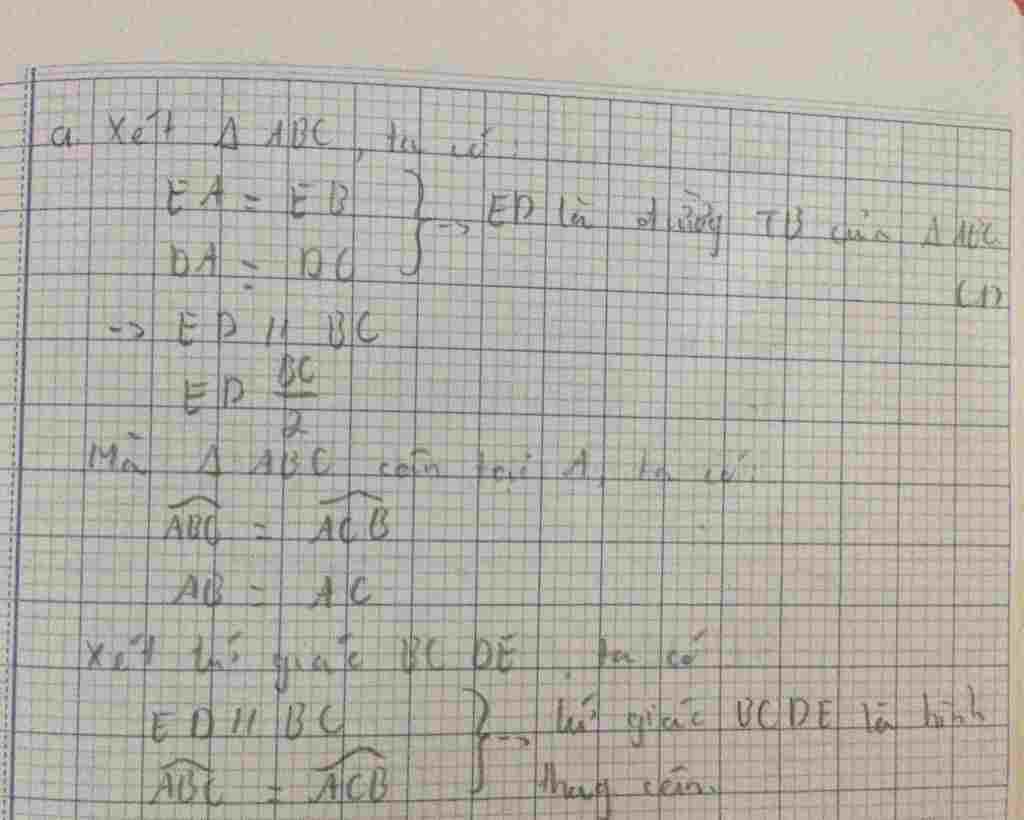 a. Xét Δ ABC, ta có:
EA = EB } → ED là đường TB của Δ ABC
DA = DC (1)
→ ED // BC
ED BC/2
Mà Δ ABC cân tại A, ta có:
\widehat{ABC} = \widehat{ACB}
AB = AC
Xét tứ giác BCDE, ta có
ED // BC } → tứ giác BCDE là hình
\widehat{ABC} = \widehat{ACB} thang cân.